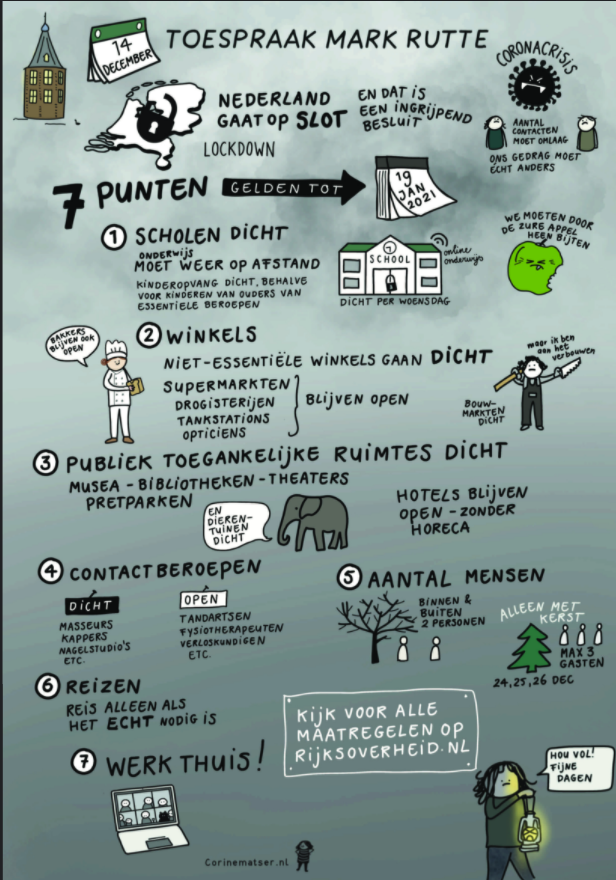 14
DECEMBER
TOESPRAAK MARK RUTTE
CORONACRISIS
NEDERLAND
GAAT OP SLOT
LOCKDOWN
EN DAT IS
EEN INGRIJPEND
BESLUIT
AANTAL
CONTACTEN
MOET OMLAAG
ONS GEDRAG MOET
ECHT ANDERS
7 PUNTEN GELDEN TOT
19
JAN
2021
1 SCHOLEN DICHT
ONDERWIJS
MOET WEER OP AFSTAND
KINDEROPVANG DICHT, BEHALVE
VOOR KINDEREN VAN OUDERS VAN
ESSENTIELE BEROEPEN
SCHOOL
online
onderwijs
DICHT PER WOENSDAG
WE MOETEN DOOR
DE ZURE APPEL
HEEN BIJTEN
BAKKERS
BLIJVEN OOK
OPEN
2 WINKELS
NIET-ESSENTIËLE WINKELS GAAN DICHT
SUPERMARKTEN
DROGISTERIJEN
TANKSTATIONS
OPTICIENS
BLIJVEN OPEN
maar ik ben
aan het
verbouwen
BOUW-
MARKTEN
DICHT
3 PUBLIEK TOEGANKELIJKE RUIMTES DICHT
MUSEA - BIBLIOTHEKEN - THEATERS
PRETPARKEN
EN
DIEREN-
TUINEN
DICHT
HOTELS BLIJVEN
OPEN - ZONDER
HORECA
4 CONTACTBEROEPEN
DICHT
MASSEURS
KAPPERS
NAGELSTUDIO'S
ETC.
OPEN
TANDARTSEN
FYSIOTHERAPEUTEN
VERLOSKUNDIGEN
ETC.
5 AANTAL MENSEN
BINNEN &
BUITEN
2 PERSONEN
ALLEEN MET
KERST
MAX 3
GASTEN
24, 25, 26 DEC
6 REIZEN
REIS ALLEEN ALS
HET ECHT NODIG IS
KIJK VOOR ALLE
MAATREGELEN OP
RIJKSOVERHEID.NL
7 WERK THUIS!
HOU VOL!
FIJNE
DAGEN
Corinematser.nl